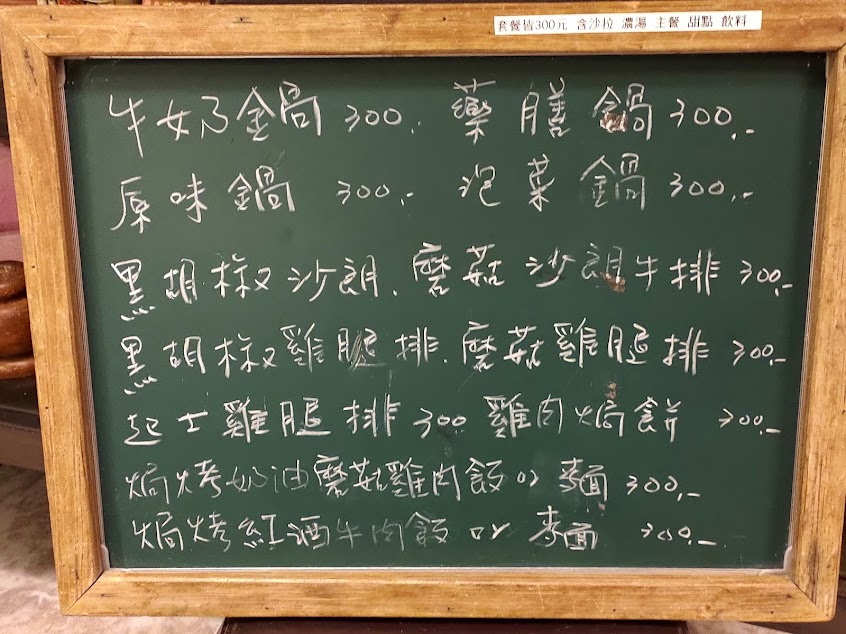 套餐皆300元 含沙拉 濃湯 主餐 甜點 飲料
牛奶鍋 300.- 藥膳鍋 300.-
原味鍋 300.- 泡菜鍋 300.-
黑胡椒沙朗.磨菇沙朗牛排 300.-
黑胡椒雞腿排.磨菇雞腿排 300.-
起士雞腿排 300 雞肉焗餅 300.-
焗烤奶油磨菇雞肉飯 or 麥面 300.-
焗烤紅酒牛肉飯 or 麥面 300.-